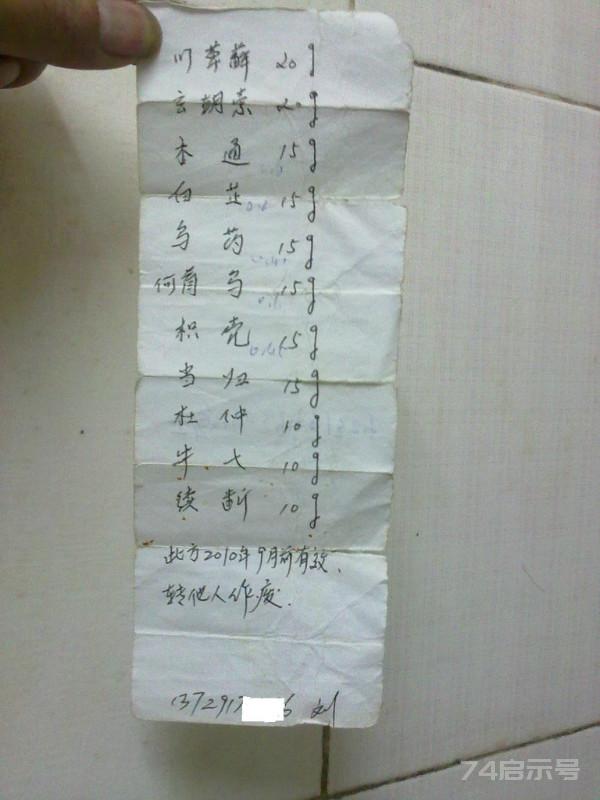 川萆薢 20g
玄胡索 20g
木通 15g
白芷 15g
乌药 15g
何首乌 15g
枳壳 15g
当归 15g
杜仲 10g
牛七 10g
续断 10g
此方2010年9月前有效、
转他人作废.
137291 6 刘
74启示号